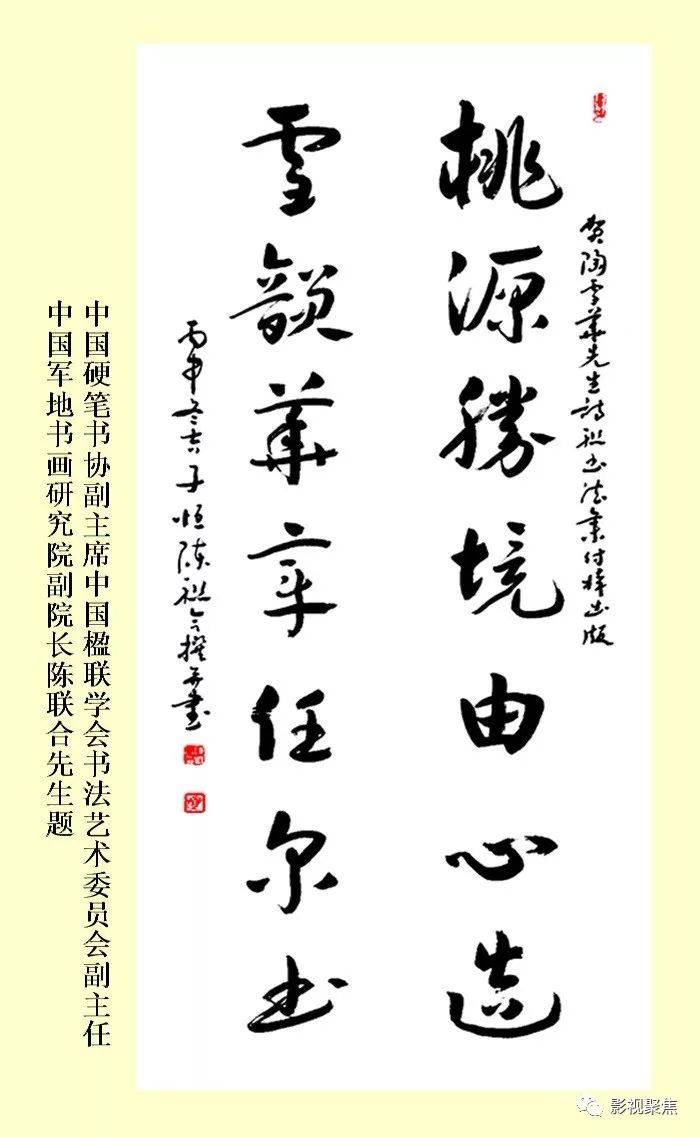 贺陶雪華先生詩联书法集付梓出版
桃源勝境由心造
雪韻華章任尔书
丙申冬吉子恒陈联合撰并書
中国硬笔书协副主席中国楹联学会书法艺术委员会副主任
中国军地书画研究院副院长陈联合先生题
影视聚焦